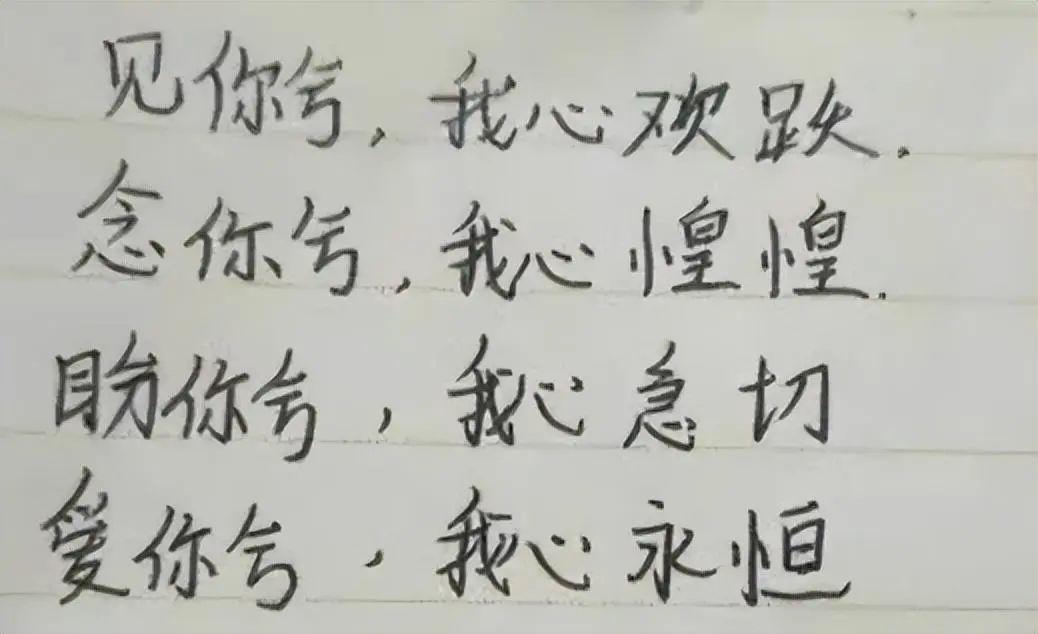 见你兮,我心欢跃.
念你兮,我心惶惶.
盼你兮,我心急切
爱你兮,我心永恒